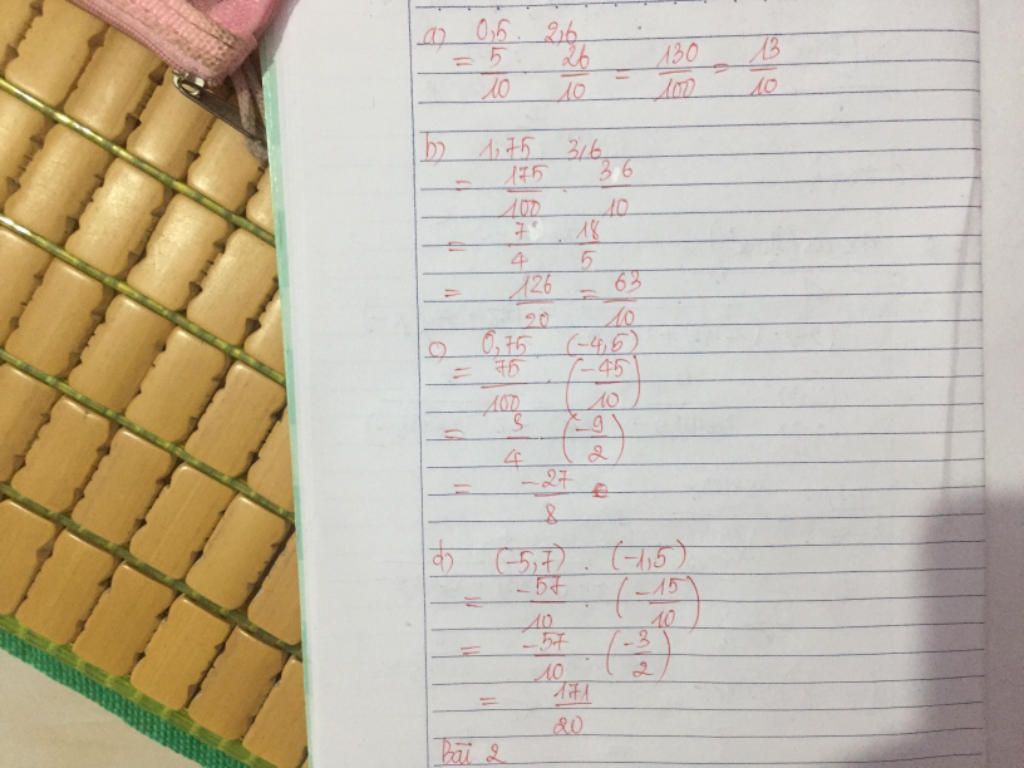 a) 0,5 . 2,6
= 5/10 . 26/10 = 130/100 = 13/10
b) 1,75 3,6
= 175/100 . 36/10
= 7/4 . 18/5
= 126/20 = 63/10
c) 0,75 (-4,5)
= 75/100 . (-45/10)
= 3/4 . (-9/2)
= -27/8
d) (-5,7) . (-1,5)
= -57/10 . (-15/10)
= -57/10 . (-3/2)
= 171/20
Bài 2